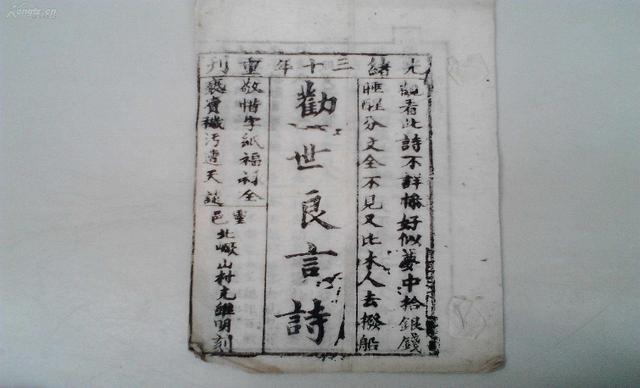 光緒三十年重刊
觀看此詩不詳好似夢中拾銀錢
睡醒分文全不見又比木人去撥船
勸世良言詩
敬惜字紙福祿全
穢污遭天
邑
北山村維明刻